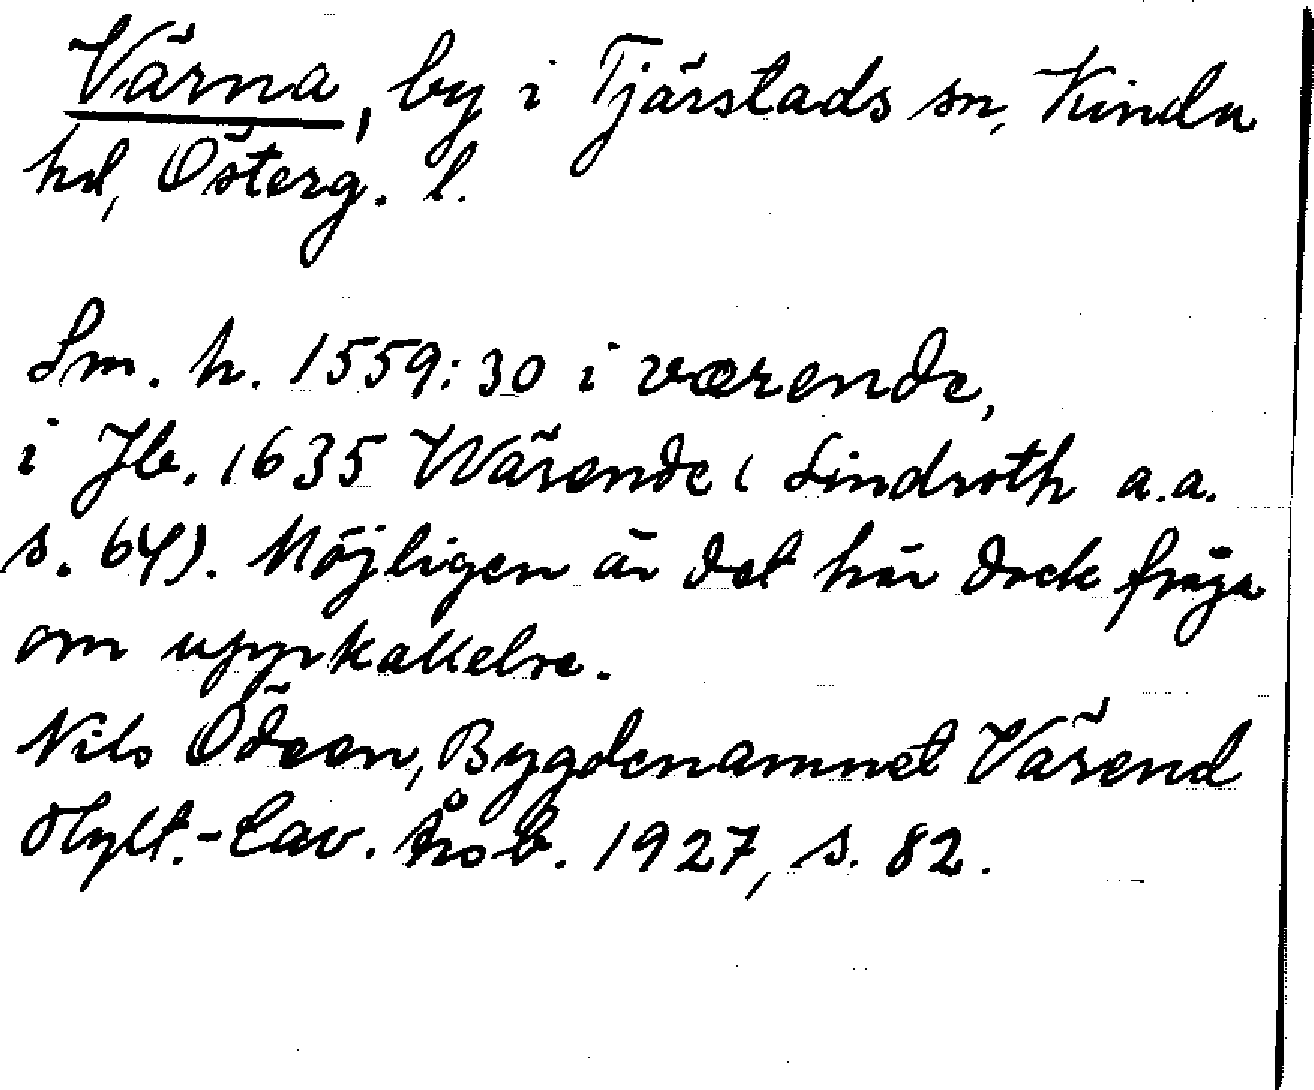 Värna, by i Tjärstads sn, Kinda
hd, Österg. l.
Sm. h. 1559:30 i værende,
i Jb. 1635 Wärende (Lindroth a.a.
s. 64). Möjligen är det här dock fråga
om uppkallelse.
Nils Ödeen, Bygdenamnet Värend
Hylt.-Cav. Årsb. 1927, s. 82.